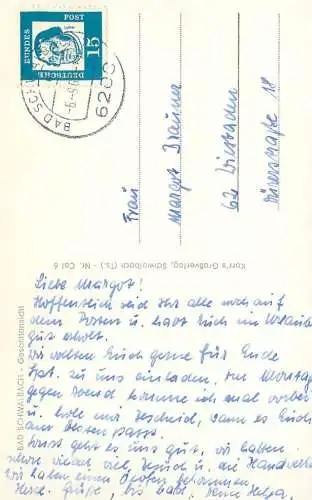 DEUTSCHE
BUNDES
POST
15
BAD SCHW
6208
Frau
Margot Brauner
62 Wiesbaden
Dürerstraße 18
Korr's Großverlag, Schwalbach (Ts.) - Nr. Col 6
BAD SCHWALBACH - Gesamtansicht
Liebe Margot!
Hoffentlich seid Ihr alle noch auf
dem Posten u. habt Euch im Urlaub
gut erholt.
Wir wollten Euch gerne für Ende
Sept. zu uns einladen. Am Montag
gegen Abend komme ich mal vorbei
u. hole mir Bescheid, wann es Euch
am besten passt.
Sonst geht es uns gut, wir hatten
schon wieder viel Besuch u. die Handwerker.
Wir haben einen Ofen bekommen.
Herzl. Grüße, bis bald, Eure Helga